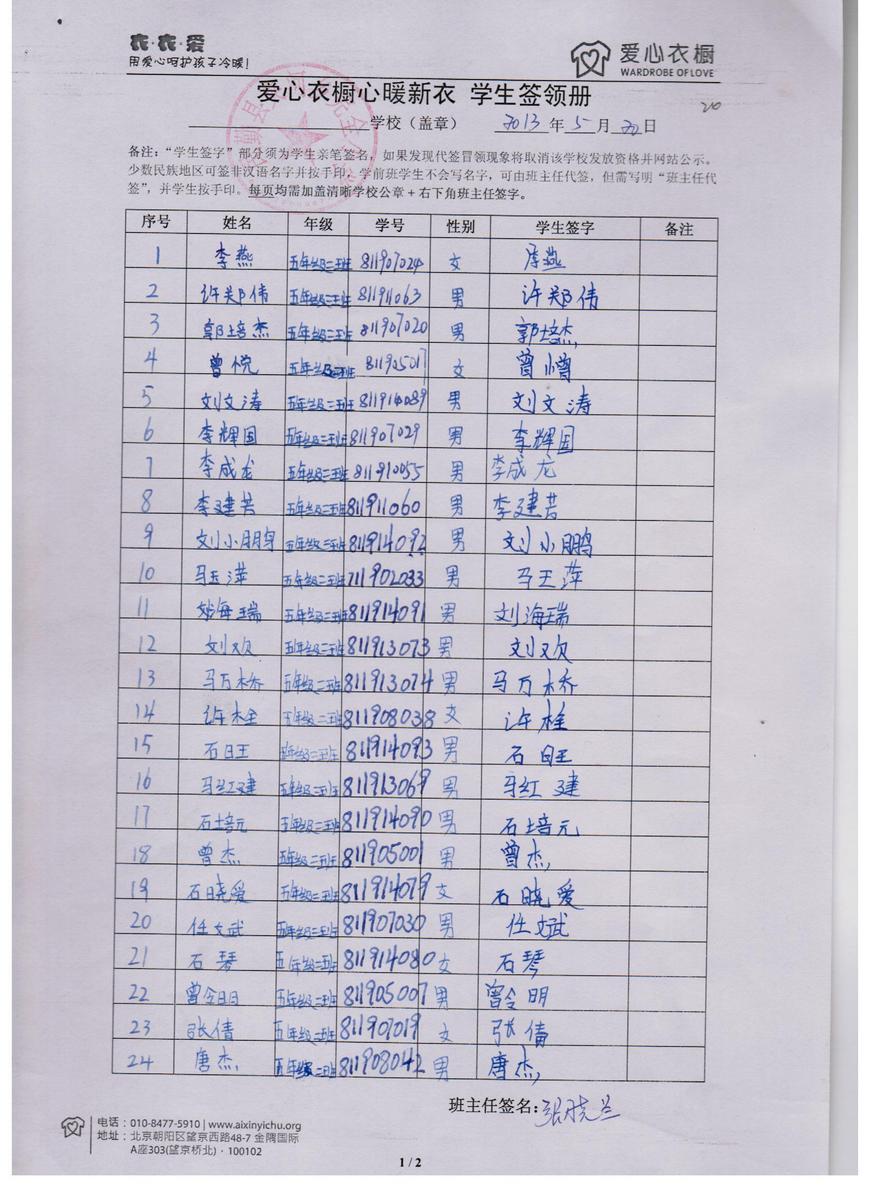 衣·衣·爱
用爱心呵护孩子冷暖!
爱心衣橱
WARDROBE OF LOVE
爱心衣橱心暖新衣 学生签领册
20
学校（盖章） 2013 年 5 月 20 日
备注：“学生签字”部分须为学生亲笔签名，如果发现代签冒领现象将取消该学校发放资格并网站公示。
少数民族地区可签非汉语名字并按手印。学前班学生不会写名字，可由班主任代签，但需写明“班主任代
签”，并学生按手印。每页均需加盖清晰学校公章+右下角班主任签字。
序号 姓名 年级 学号 性别 学生签字 备注
1 李燕 五年级二班 811907024 女 李燕
2 许郑伟 五年级二班 811911063 男 许郑伟
3 郭培杰 五年级二班 811907020 男 郭培杰
4 曾悦 五年级二班 811905017 女 曾
5 刘文涛 五年级二班 811914089 男 刘文涛
6 李辉国 五年级二班 811907029 男 李辉国
7 李成龙 五年级二班 811910055 男 李成龙
8 李建芳 五年级二班 811911060 男 李建芳
9 刘小鹏 五年级二班 811914092 男 刘小鹏
10 马玉萍 五年级二班 711902033 男 马玉萍
11 海瑞 五年级二班 811914091 男 刘海瑞
12 刘欢 五年级二班 811913073 男 刘欢
13 马万桥 五年级二班 811913074 男 马万桥
14 许桂 五年级二班 811908038 女 许桂
15 石旺 五年级二班 811914093 男 石旺
16 马红建 五年级二班 811913069 男 马红建
17 石培元 五年级二班 811914090 男 石培元
18 曾杰 五年级二班 811905001 男 曾杰
19 石晓爱 五年级二班 811914079 女 石晓爱
20 任文斌 五年级二班 811907030 男 任文斌
21 石琴 五年级二班 811914080 女 石琴
22 曾令明 五年级二班 811905007 男 曾令明
23 张倩 五年级二班 811907019 女 张倩
24 唐杰 五年级二班 811908042 男 唐杰
班主任签名: 张晓兰
电话：010-8477-5910 | www.aixinyichu.org
地址：北京朝阳区望京西路48-7 金隅国际
A座303(望京桥北)·100102
1 / 2